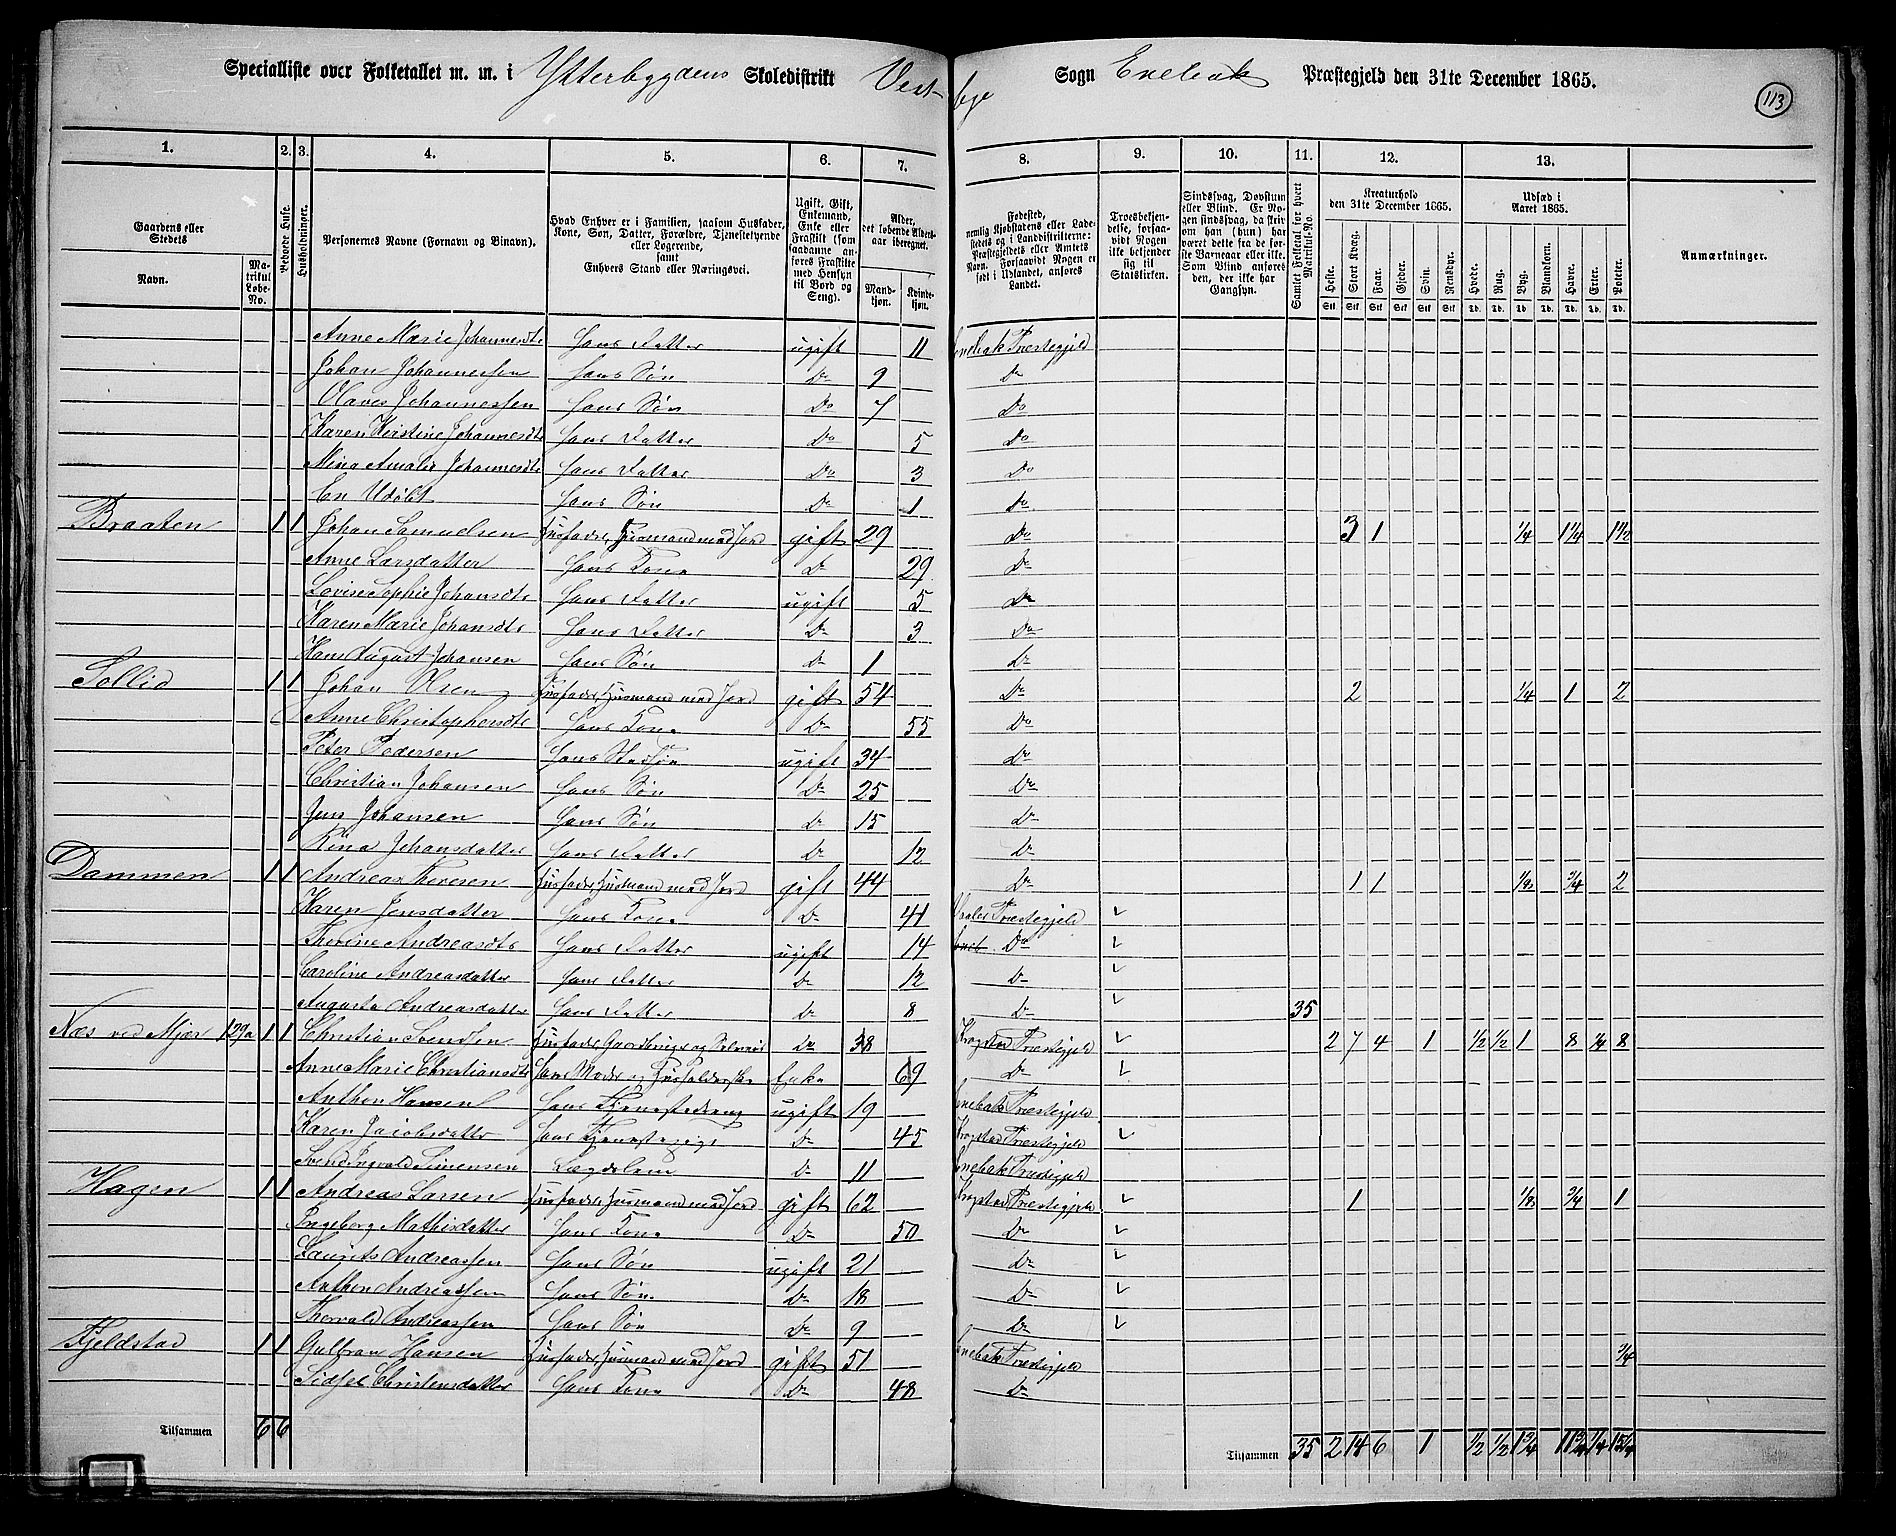 Specialliste over Folketallet m. m. i Ytterbygdens Skoledistrikt Vestbye Sogn Enebak Præstegjeld den 31te December 1865.
113
1. 2. 3. 4. 5. 6. 7. 8. 9. 10. 11. 12. 13.
Gaardens eller Stedets
Navn.
Matrikul Løbe-No.
Beboede Huse.
Husholdninger.
Personernes Navne (Fornavn og Binavn).
Hvad Enhver er i Familien, saasom Husfader, Kone, Søn, Datter, Forældre, Tjenestetyende eller Logerende, samt Enhvers Stand eller Næringsvei.
Ugift, Gift, Enkemand, Enke eller Fraskilt (som saadanne anføres Fraskilte med Hensyn til Bord og Seng).
Alder, det løbende Aldersaar iberegnet.
Mandkjøn. Kvindekjøn.
Fødested, nemlig Kjøbstadens eller Ladestedets og i Landdistrikterne: Præstegjeldets eller Amtets Navn. Forsaavidt Nogen er født i Udlandet, anføres Landet.
Troesbekjendelse, forsaavidt Nogen ikke bekjender sig til Statskirken.
Sindssvag, Døvstum eller Blind. Er Nogen sindssvag, da skrives om han (hun) har været dette fra de første Barneaar eller ikke. Som Blind anføres den, der ikke har Gangsyn.
Samlet Folketal for hvert Matrikul-No.
Kreaturhold den 31te December 1865.
Heste. Stort Kvæg. Faar. Gjeder. Svin. Rensdyr.
Udsæd i Aaret 1865.
Hvede. Rug. Byg. Blandkorn. Havre. Erter. Poteter.
Anmærkninger.
Anne Marie Johannesdtr hans Datter ugift 11 Enebak Præstegjeld
Johan Johannessen hans Søn Do 9 Do
Olaves Johannessen hans Søn Do 7 Do
Karen Kirstine Johannesdtr hans Datter Do 5 Do
Mina Amalie Johannesdtr hans Datter Do 3 Do
En Udøbt hans Søn Do 1 Do
Braaten 1 1 Johan Samuelsen Husfader, Husmand med Jord gift 29 Do 3 1 1/4 1 1/4 1 1/2
Anne Larsdatter hans Kone Do 29 Do
Lovise Sophie Johansdtr hans Datter ugift 5 Do
Karen Marie Johansdtr hans Datter Do 3 Do
Hans August Johansen hans Søn Do 1 Do
Sollid 1 1 Johan Olsen Husfader, Husmand med Jord gift 54 Do 2 1/4 1 2
Anne Christophersdtr hans Kone Do 55 Do
Peter Pedersen hans Stedsøn ugift 34 Do
Christian Johansen hans Søn Do 25 Do
Jens Johansen hans Søn Do 15 Do
Nina Johansdatter hans Datter Do 12 Do
Dammen 1 1 Andreas Thoresen Husfader, Husmand med Jord gift 44 Do 1 1 1/8 3/4 2
Karen Jensdatter hans Kone Do 41 Vaaler Præstegjeld
Thorine Andreasdtr hans Datter ugift 14 Do
Caroline Andreasdatter hans Datter Do 12 Do
Augusta Andreasdatter hans Datter Do 8 Do 35
Næs ved Mjær 129a 1 1 Christian Svendsen Husfader, Gaardbruger og Selveier Do 38 Krogstad Præstegjeld 2 7 4 1 1/2 1/2 1 8 1/4 8
Anne Marie Christiansdtr hans Moder og Husholderske Enke 69 Do
Anthon Hansen hans Tjenestedreng ugift 19 Enebak Præstegjeld
Karen Jacobsdatter hans Tjenestepige Do 45 Krogstad Præstegjeld
Svend Ingvald Simensen Lægdslem Do 11 Enebak Præstegjeld
Hagen 1 1 Andreas Larsen Husfader, Husmand med Jord gift 62 Krogstad Præstegjeld 1 1/8 3/4 1
Ingeborg Mathisdatter hans Kone Do 50 Do
Laurits Andreassen hans Søn ugift 21 Do
Anthon Andreassen hans Søn Do 18 Do
Thorvald Andreassen hans Søn Do 9 Do
Fjeldstad 1 1 Gulbran Hansen Husfader, Husmand med Jord gift 51 Enebak Præstegjeld 3/4
Sidsel Christensdatter hans Kone Do 48 Do
Tilsammen 6 6 Tilsammen 35 2 14 6 1 1/2 1/2 1 3/4 11 3/4 1/4 15 1/4